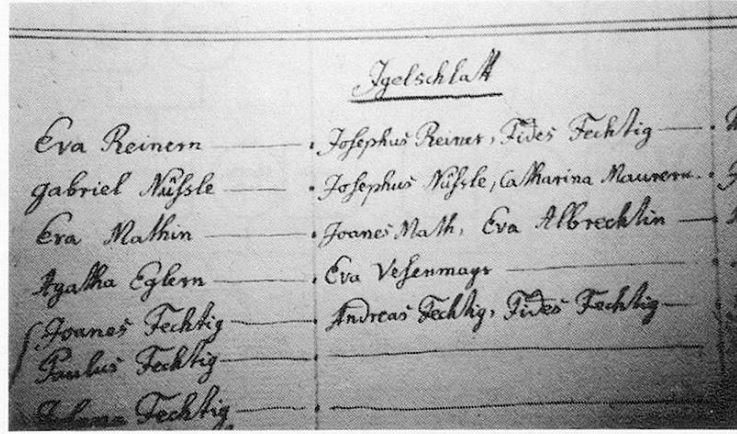 Igelschlatt
Eva Reinern Josephus Reiner, Fides Fechtig
Gabriel Nüssle Josephus Nüssle, Catharina Maurern
Eva Mathin Joanes Math, Eva Albrechtin
Agatha Eglern Eva Vesenmayr
Joanes Fechtig Andreas Fechtig, Fides Fechtig
Paulus Fechtig
Fechtig